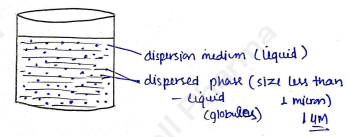 dispersion medium (liquid)
dispersed phase (size less than
- liquid 1 micron)
(globules) 1 µM